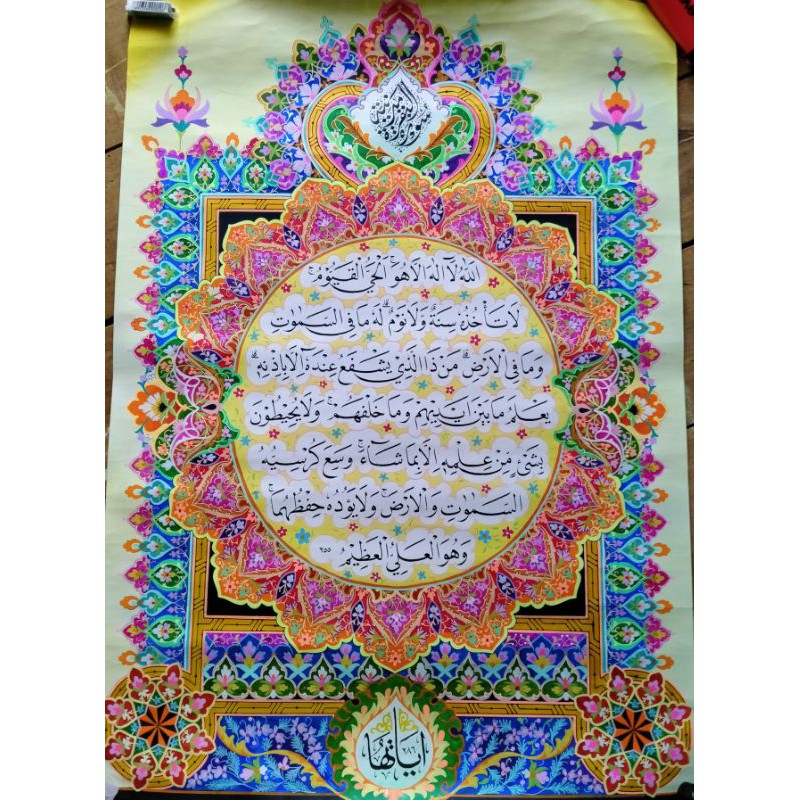 سورة البقرة مدنية
اَللّٰهُ لَآ اِلٰهَ اِلَّا هُوَۚ اَلْحَيُّ الْقَيُّوْمُ ۚ
لَا تَأْخُذُهٗ سِنَةٌ وَّلَا نَوْمٌۗ لَهٗ مَا فِى السَّمٰوٰتِ
وَمَا فِى الْاَرْضِۗ مَنْ ذَا الَّذِيْ يَشْفَعُ عِنْدَهٗٓ اِلَّا بِاِذْنِهٖۗ
يَعْلَمُ مَا بَيْنَ اَيْدِيْهِمْ وَمَا خَلْفَهُمْۚ وَلَا يُحِيْطُوْنَ
بِشَيْءٍ مِّنْ عِلْمِهٖٓ اِلَّا بِمَا شَاۤءَۚ وَسِعَ كُرْسِيُّهُ
السَّمٰوٰتِ وَالْاَرْضَۚ وَلَا يَـُٔوْدُهٗ حِفْظُهُمَاۚ
وَهُوَ الْعَلِيُّ الْعَظِيْمُ ٢٥٥
اياتها ٢٨٦